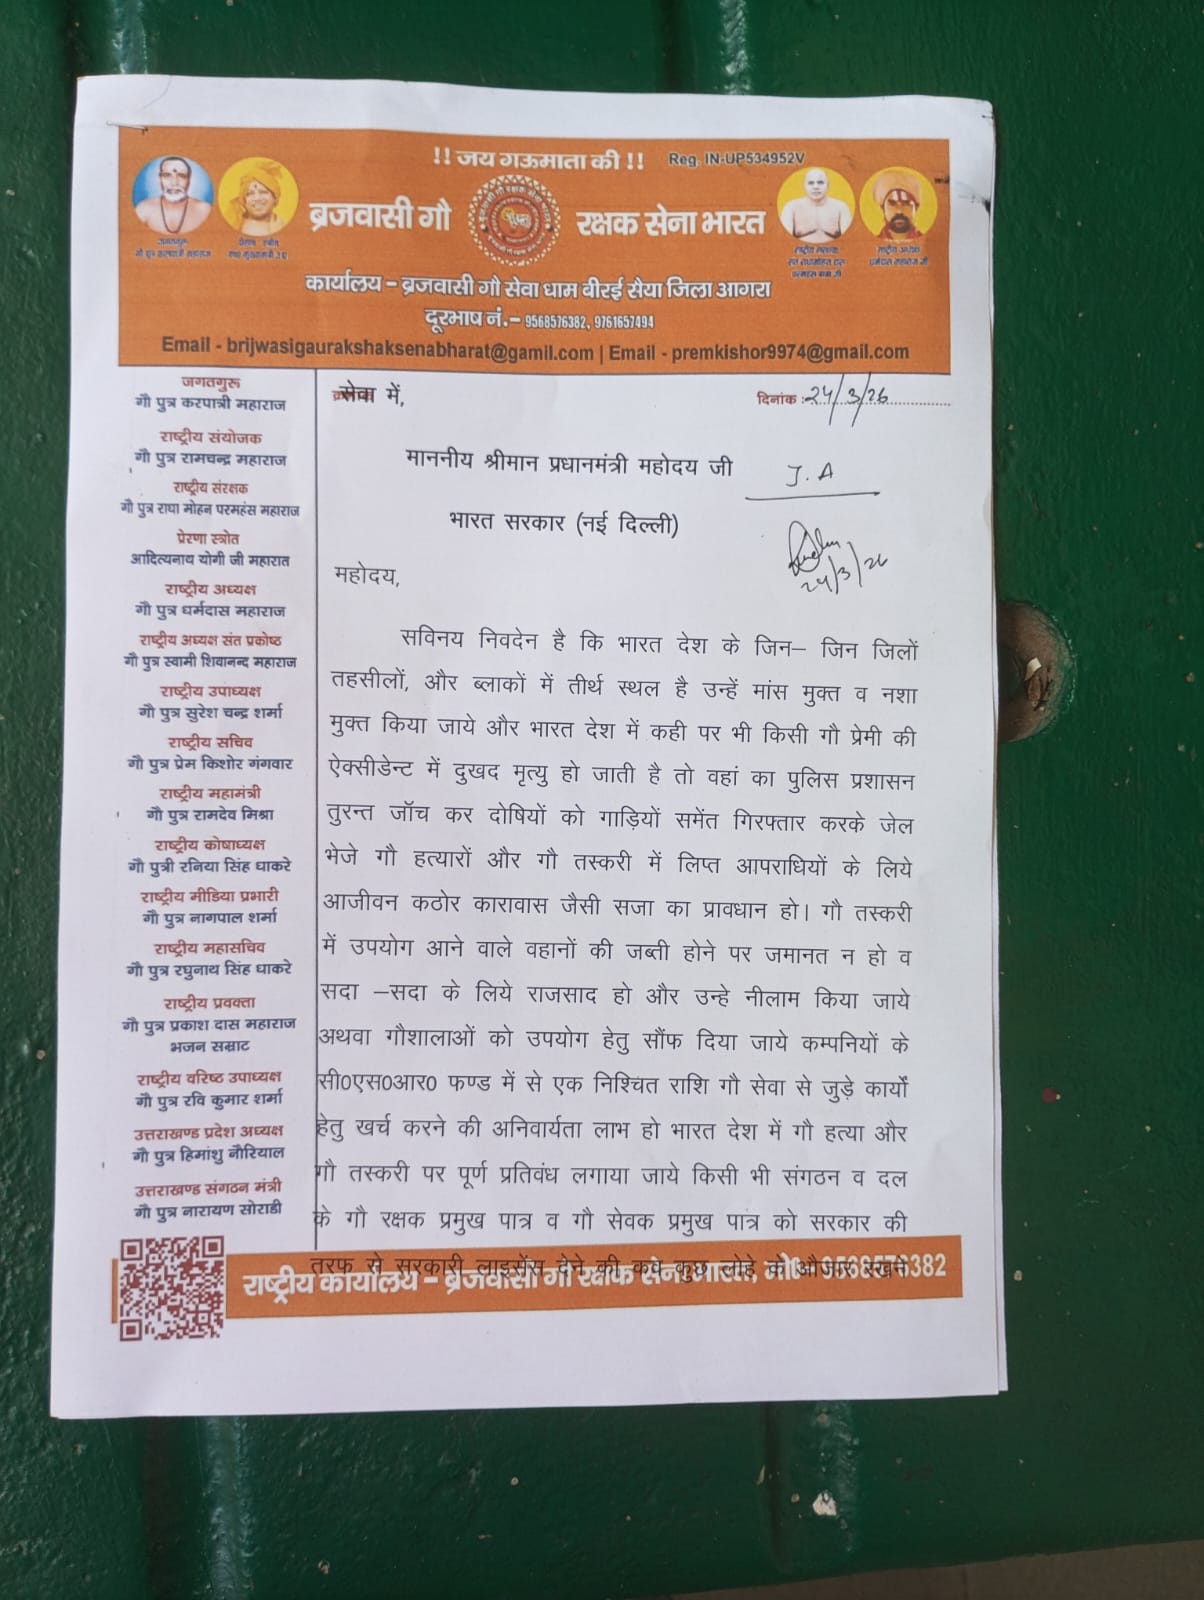 !! जय गऊमाता की !! Reg. IN-UP534952V
ब्रजवासी गौ रक्षक सेना भारत
कार्यालय – ब्रजवासी गौ सेवा धाम बीरई सैया जिला आगरा
दूरभाष नं.– 9568576382, 9761657494
Email - brijwasigaurakshaksenabharat@gamil.com | Email - premkishor9974@gmail.com
जगतगुरू
गौ पुत्र करपात्री महाराज
राष्ट्रीय संयोजक
गौ पुत्र रामचन्द्र महाराज
राष्ट्रीय संरक्षक
गौ पुत्र राधा मोहन परमहंस महाराज
प्रेरणा स्त्रोत
आदित्यनाथ योगी जी महारात
राष्ट्रीय अध्यक्ष
गौ पुत्र धर्मदास महाराज
राष्ट्रीय अध्यक्ष संत प्रकोष्ठ
गौ पुत्र स्वामी शिवानन्द महाराज
राष्ट्रीय उपाध्यक्ष
गौ पुत्र सुरेश चन्द्र शर्मा
राष्ट्रीय सचिव
गौ पुत्र प्रेम किशोर गंगवार
राष्ट्रीय महामंत्री
गौ पुत्र रामदेव मिश्रा
राष्ट्रीय कोषाध्यक्ष
गौ पुत्री रनिया सिंह धाकरे
राष्ट्रीय मीडिया प्रभारी
गौ पुत्र नागपाल शर्मा
राष्ट्रीय महासचिव
गौ पुत्र रघुनाथ सिंह धाकरे
राष्ट्रीय प्रवक्ता
गौ पुत्र प्रकाश दास महाराज
भजन सम्राट
राष्ट्रीय वरिष्ठ उपाध्यक्ष
गौ पुत्र रवि कुमार शर्मा
उत्तराखण्ड प्रदेश अध्यक्ष
गौ पुत्र हिमांशु नौरियाल
उत्तराखण्ड संगठन मंत्री
गौ पुत्र नारायण सोराडी
सेवा में,
दिनांक :24/3/26
माननीय श्रीमान प्रधानमंत्री महोदय जी
J.A
भारत सरकार (नई दिल्ली)
24/3/26
महोदय,
सविनय निवदेन है कि भारत देश के जिन– जिन जिलों
तहसीलों, और ब्लाकों में तीर्थ स्थल है उन्हें मांस मुक्त व नशा
मुक्त किया जाये और भारत देश में कही पर भी किसी गौ प्रेमी की
ऐक्सीडेन्ट में दुखद मृत्यु हो जाती है तो वहां का पुलिस प्रशासन
तुरन्त जॉच कर दोषियों को गाड़ियों समेंत गिरफ्तार करके जेल
भेजे गौ हत्यारों और गौ तस्करी में लिप्त आपराधियों के लिये
आजीवन कठोर कारावास जैसी सजा का प्रावधान हो। गौ तस्करी
में उपयोग आने वाले वहानों की जब्ती होने पर जमानत न हो व
सदा –सदा के लिये राजसाद हो और उन्हे नीलाम किया जाये
अथवा गौशालाओं को उपयोग हेतु सौंफ दिया जाये कम्पनियों के
सी0एस0आर0 फण्ड में से एक निश्चित राशि गौ सेवा से जुड़े कार्यों
हेतु खर्च करने की अनिवार्यता लाभ हो भारत देश में गौ हत्या और
गौ तस्करी पर पूर्ण प्रतिवंध लगाया जाये किसी भी संगठन व दल
के गौ रक्षक प्रमुख पात्र व गौ सेवक प्रमुख पात्र को सरकार की
तरफ से सरकारी लाइसेंस देने की कृपा कुछ लोहे के औजार रखने
राष्ट्रीय कार्यालय – ब्रजवासी गौ रक्षक सेना भारत मो0 9568576382